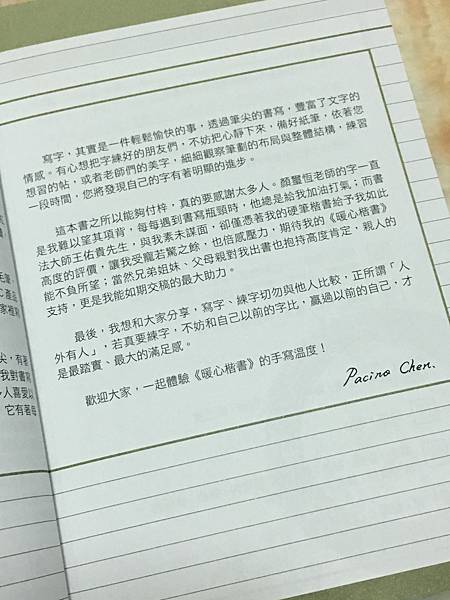 寫字，其實是一件輕鬆愉快的事，透過筆尖的書寫，豐富了文字的
情感。有心想把字練好的朋友們，不妨把心靜下來，備好紙筆，依著您
想習的帖，或者老師們的美字，細細觀察筆劃的布局與整體結構，練習
一段時間，您將發現自己的字有著明顯的進步。
這本書之所以能夠付梓，真的要感謝太多人。顏璽恆老師的字一直
是我難以望其項背，每每遇到書寫瓶頸時，他總是給我加油打氣；而書
法大師王佑貴先生，與我素未謀面，卻僅憑著我的硬筆楷書給予我如此
高度的評價，讓我受寵若驚之餘，也倍感壓力，期待我的《暖心楷書》
能不負所望；當然兄弟姐妹、父母親對我出書也抱持高度肯定，親人的
支持，更是我能如期交稿的最大助力。
最後，我想和大家分享，寫字、練字切勿與他人比較，正所謂「人
外有人」，若真要練字，不妨和自己以前的字比，贏過以前的自己，才
是最踏實、最大的滿足感。
歡迎大家，一起體驗《暖心楷書》的手寫溫度！
Pacino Chen.
毛筆
C產品
家裡
尖，有著
我對書寫
人喜愛以
它有著母